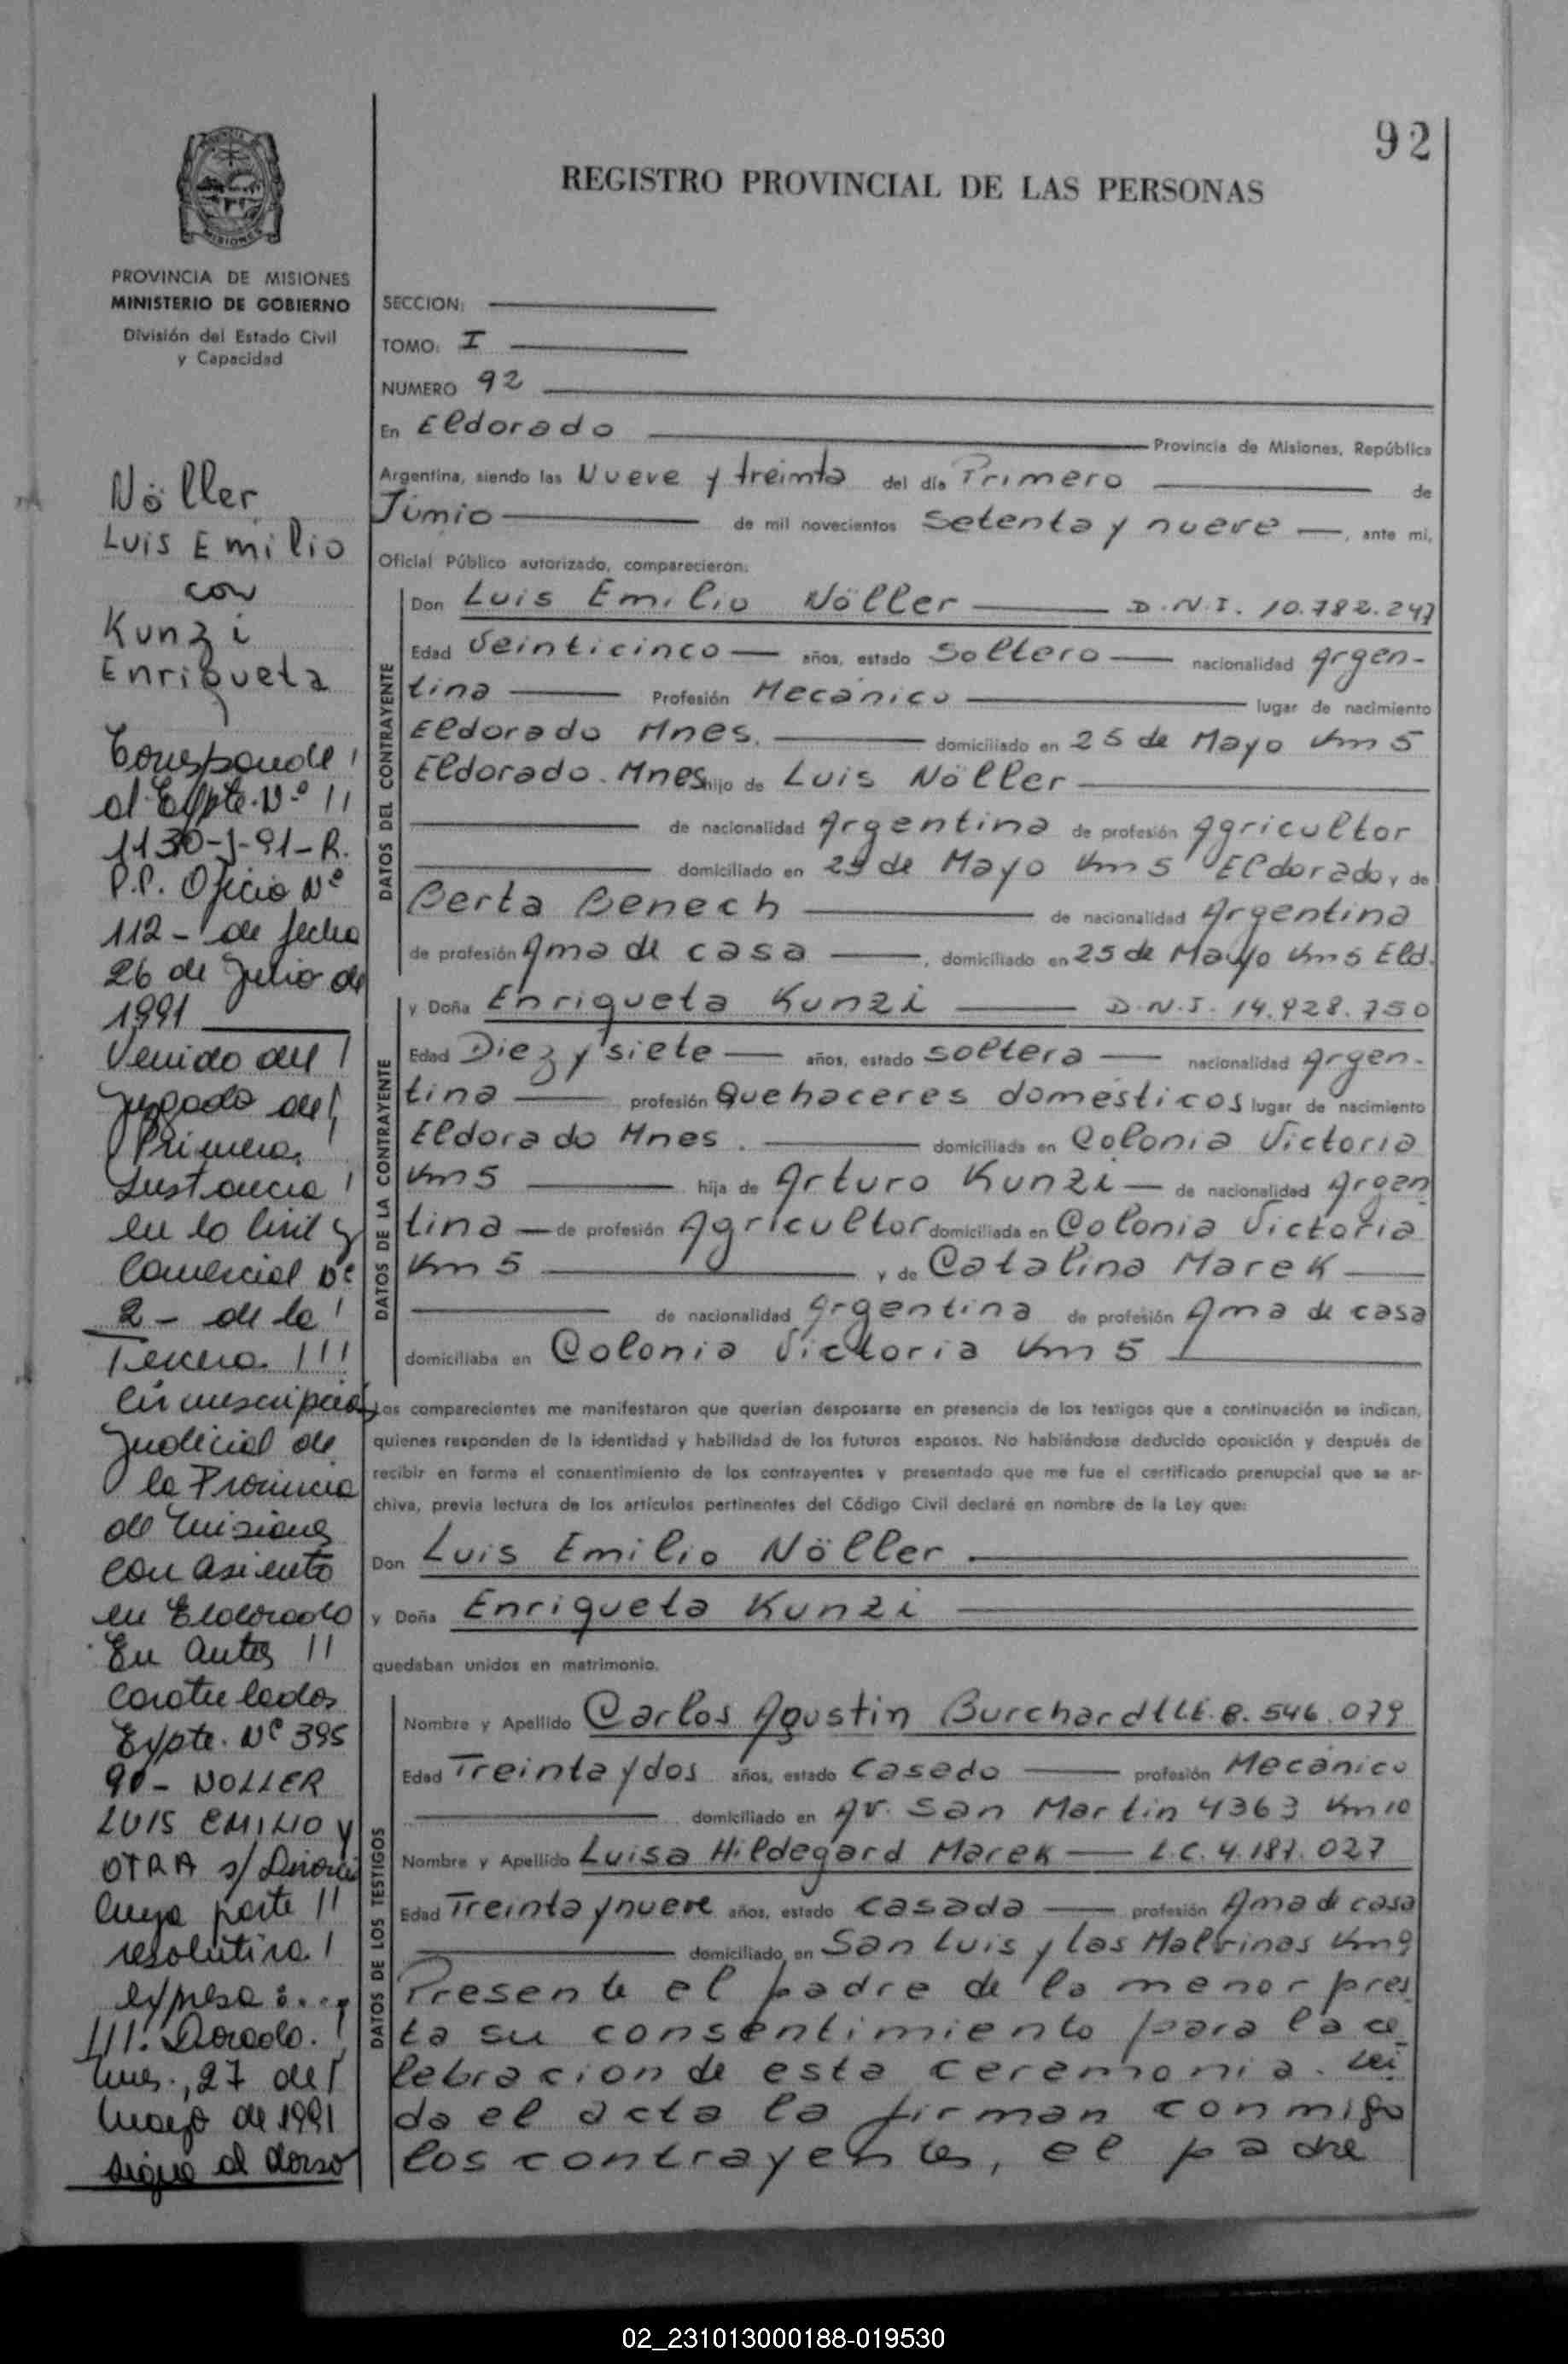 92
REGISTRO PROVINCIAL DE LAS PERSONAS
MISIONES
PROVINCIA DE MISIONES
MINISTERIO DE GOBIERNO
División del Estado Civil
y Capacidad
Nöller
Luis Emilio
con
Kunzi
Enriqueta
Corresponde
al Expte. Nº
1130-J-91-R.
P.P. Oficio Nº
112 - de fecha
26 de Julio de
1991
Venido del
Juzgado de
Primera
Instancia
en lo Civil y
Comercial Nº
2 - de la
Tercera
Circunscripción
Judicial de
la Provincia
de Misiones
con asiento
en Eldorado
En autos
caratulados
Expte. Nº 395
90 - NOLLER
LUIS EMILIO y
OTRA s/ Divorcio
cuya parte
resolutiva
expresa: ...
Dorado.
Mnes., 27 de
Mayo de 1991
sigue al dorso
SECCION:
TOMO: I
NUMERO 92
En Eldorado Provincia de Misiones, República
Argentina, siendo las Nueve y treinta del día Primero de
Junio de mil novecientos setenta y nueve, ante mi,
Oficial Público autorizado, comparecieron:
DATOS DEL CONTRAYENTE
Don Luis Emilio Nöller D.N.I. 10.782.247
Edad Veinticinco años, estado Soltero nacionalidad Argen-
tina Profesión Mecánico lugar de nacimiento
Eldorado Mnes. domiciliado en 25 de Mayo Km 5
Eldorado. Mnes hijo de Luis Nöller
de nacionalidad Argentina de profesión Agricultor
domiciliado en 25 de Mayo Km 5 Eldorado y de
Berta Benech de nacionalidad Argentina
de profesión Ama de casa, domiciliado en 25 de Mayo Km 5 Eld.
DATOS DE LA CONTRAYENTE
y Doña Enriqueta Kunzi D.N.I. 14.928.750
Edad Diez y siete años, estado soltera nacionalidad Argen-
tina profesión Quehaceres domésticos lugar de nacimiento
Eldorado Mnes. domiciliada en Colonia Victoria
Km 5 hija de Arturo Kunzi de nacionalidad Argen
tina de profesión Agricultor domiciliada en Colonia Victoria
Km 5 y de Catalina Marek
de nacionalidad Argentina de profesión Ama de casa
domiciliaba en Colonia Victoria Km 5
Los comparecientes me manifestaron que querían desposarse en presencia de los testigos que a continuación se indican,
quienes responden de la identidad y habilidad de los futuros esposos. No habiéndose deducido oposición y después de
recibir en forma el consentimiento de los contrayentes y presentado que me fue el certificado prenupcial que se ar-
chiva, previa lectura de los artículos pertinentes del Código Civil declaré en nombre de la Ley que:
Don Luis Emilio Nöller
y Doña Enriqueta Kunzi
quedaban unidos en matrimonio.
DATOS DE LOS TESTIGOS
Nombre y Apellido Carlos Agustin Burchardt L.E. 8.546.079
Edad Treinta y dos años, estado casado profesión Mecánico
domiciliado en Av. San Martin 4363 Km 10
Nombre y Apellido Luisa Hildegard Marek L.C. 4.187.027
Edad Treinta y nueve años, estado casada profesión Ama de casa
domiciliado en San Luis y las Malvinas Km 9
Presente el padre de la menor pres
ta su consentimiento para la ce
lebracion de esta ceremonia. Lei
da el acta la firman conmigo
los contrayentes, el padre
02_231013000188-019530